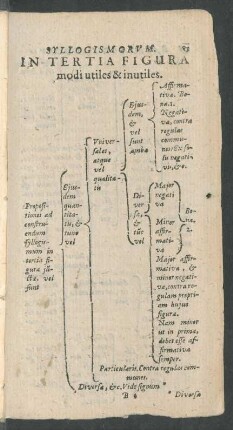 SYLLOGISMORVM.
IN TERTIA FIGURA
modi utiles & inutiles.
Propositiones
ad
construendum
syllogismum
in
tertia figura
vel
sunt
Ejusdem
quantitatis,
&
tunc
vel
Vniversales,
atque
vel
qualitatis
Ejusdem,
&
vel
sunt
ambæ
Affirmativæ.
Negativæ,
contra
regulas
communes
Diversæ,
&
vel
Major
negativa
Minor
affirmativa
Major affirmativa,
&
minor negativa,
contra regulam
propriam
hujus
figuræ.
Nam minor
ut in prima,
debet esse affirmativa
semper.
Particulares. Contra regulas communes.
Diversæ, &c. Vide signum *
B
* Diversæ